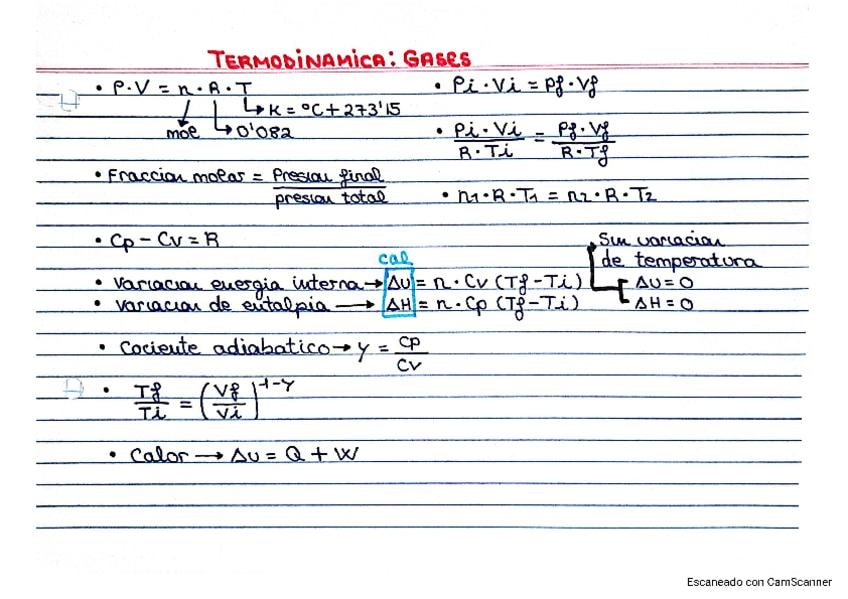 TERMODINAMICA: GASES
• P·V = n·R·T
K = ºC + 273'15
mol
0'082
• Pi·Vi = Pf·Vf
• Pi·Vi / R·Ti = Pf·Vf / R·Tf
• Fraccion molar = Presion final / presion total
• n1·R·T1 = n2·R·T2
• Cp - Cv = R
Sin variacion
de temperatura
cal
• variacion energia interna → ΔU = n·Cv (Tf-Ti)
ΔU = 0
• variacion de entalpia → ΔH = n·Cp (Tf-Ti)
ΔH = 0
• Cociente adiabatico → γ = Cp / Cv
• Tf / Ti = (Vf / Vi)^1-γ
• Calor → ΔU = Q + W
Escaneado con CamScanner